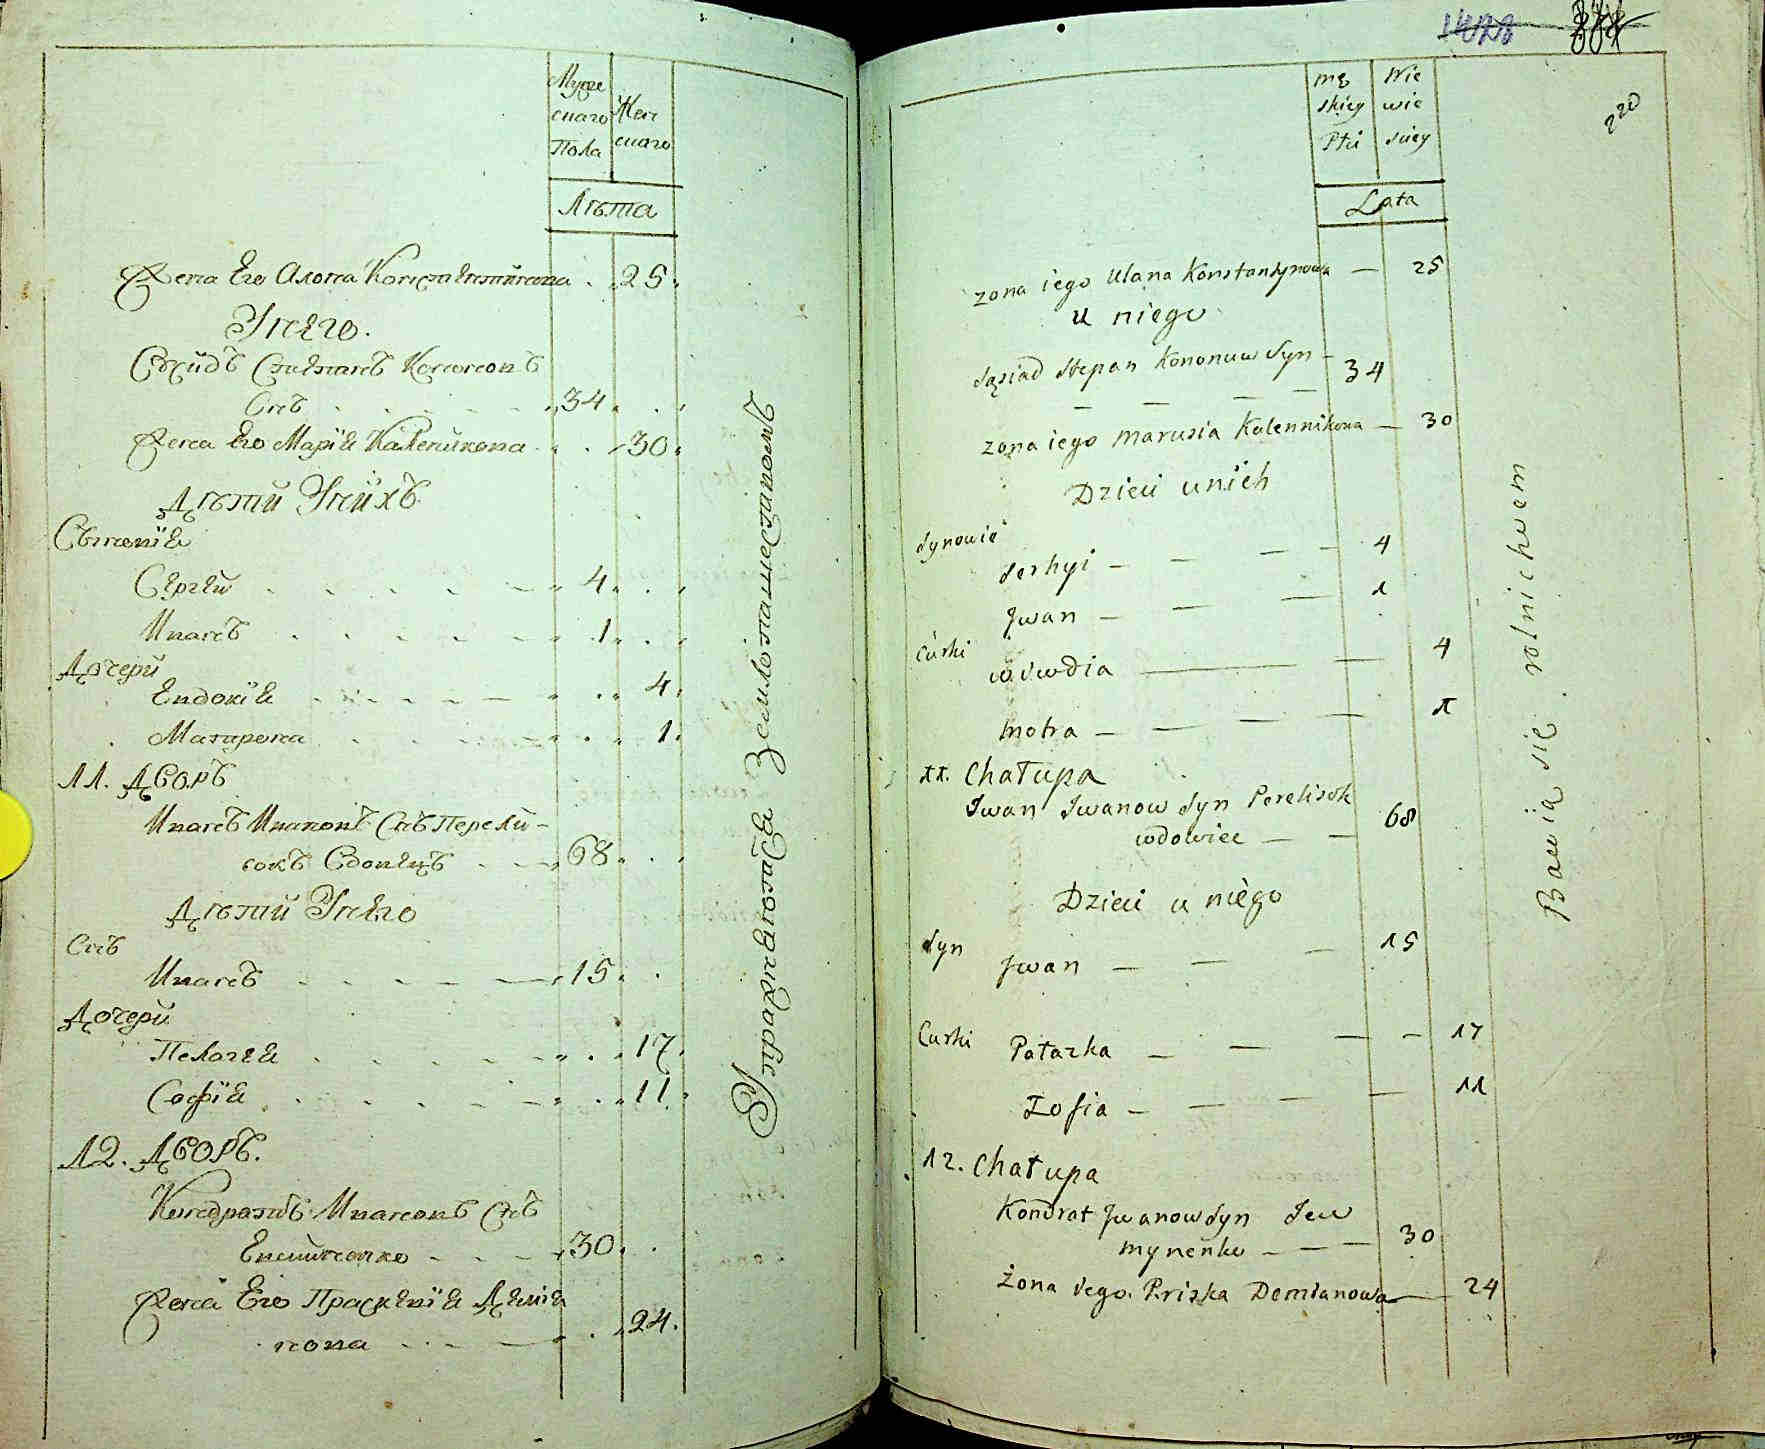 Мужескаго Пола
Женскаго
Лѣта
Жена Его Алона Константинова 25.
Унего.
Сусидъ Степанъ Кононовъ
Снъ 34.
Жена Его Марія Каленикова 30.
Дѣти Унихъ
Сыновія
Сергей 4.
Иванъ 1.
Дочери
Евдокія 4.
Матрона 1.
11. Дворъ
Иванъ Ивановъ Снъ Перели-
сокъ Вдовецъ 68.
Дѣти Унего
Снъ
Иванъ 15.
Дочери
Пелагея 17.
Софія 11.
12. Дворъ.
Кондратъ Ивановъ Снъ
30.
Жена Его Праскевія Демія
нова 24.
Упражняются Землепашествомъ
1423
220
męskiey Płci
Niewieściey
Lata
zona iego Ulana Konstantynowa — 25
u niego
Sąsiad Stepan Kononuw Syn — 34
zona iego Marusia Kalennikowa — 30
Dzieci unich
Synowie
Serhyi — 4
Jwan — 1
Curki
wiwdia — 4
Motra — 1
11. Chałupa
Iwan Iwanow Syn Perelisok
wdowiec — 68
Dzieci u niego
Syn
Jwan — 15
Curki
Patazka — 17
Zofia — 11
12. Chałupa
Kondrat Jwanow Syn Jew
mynenko — 30
Żona Jego Priska Demianowa — 24
Bawią się rolnichwem